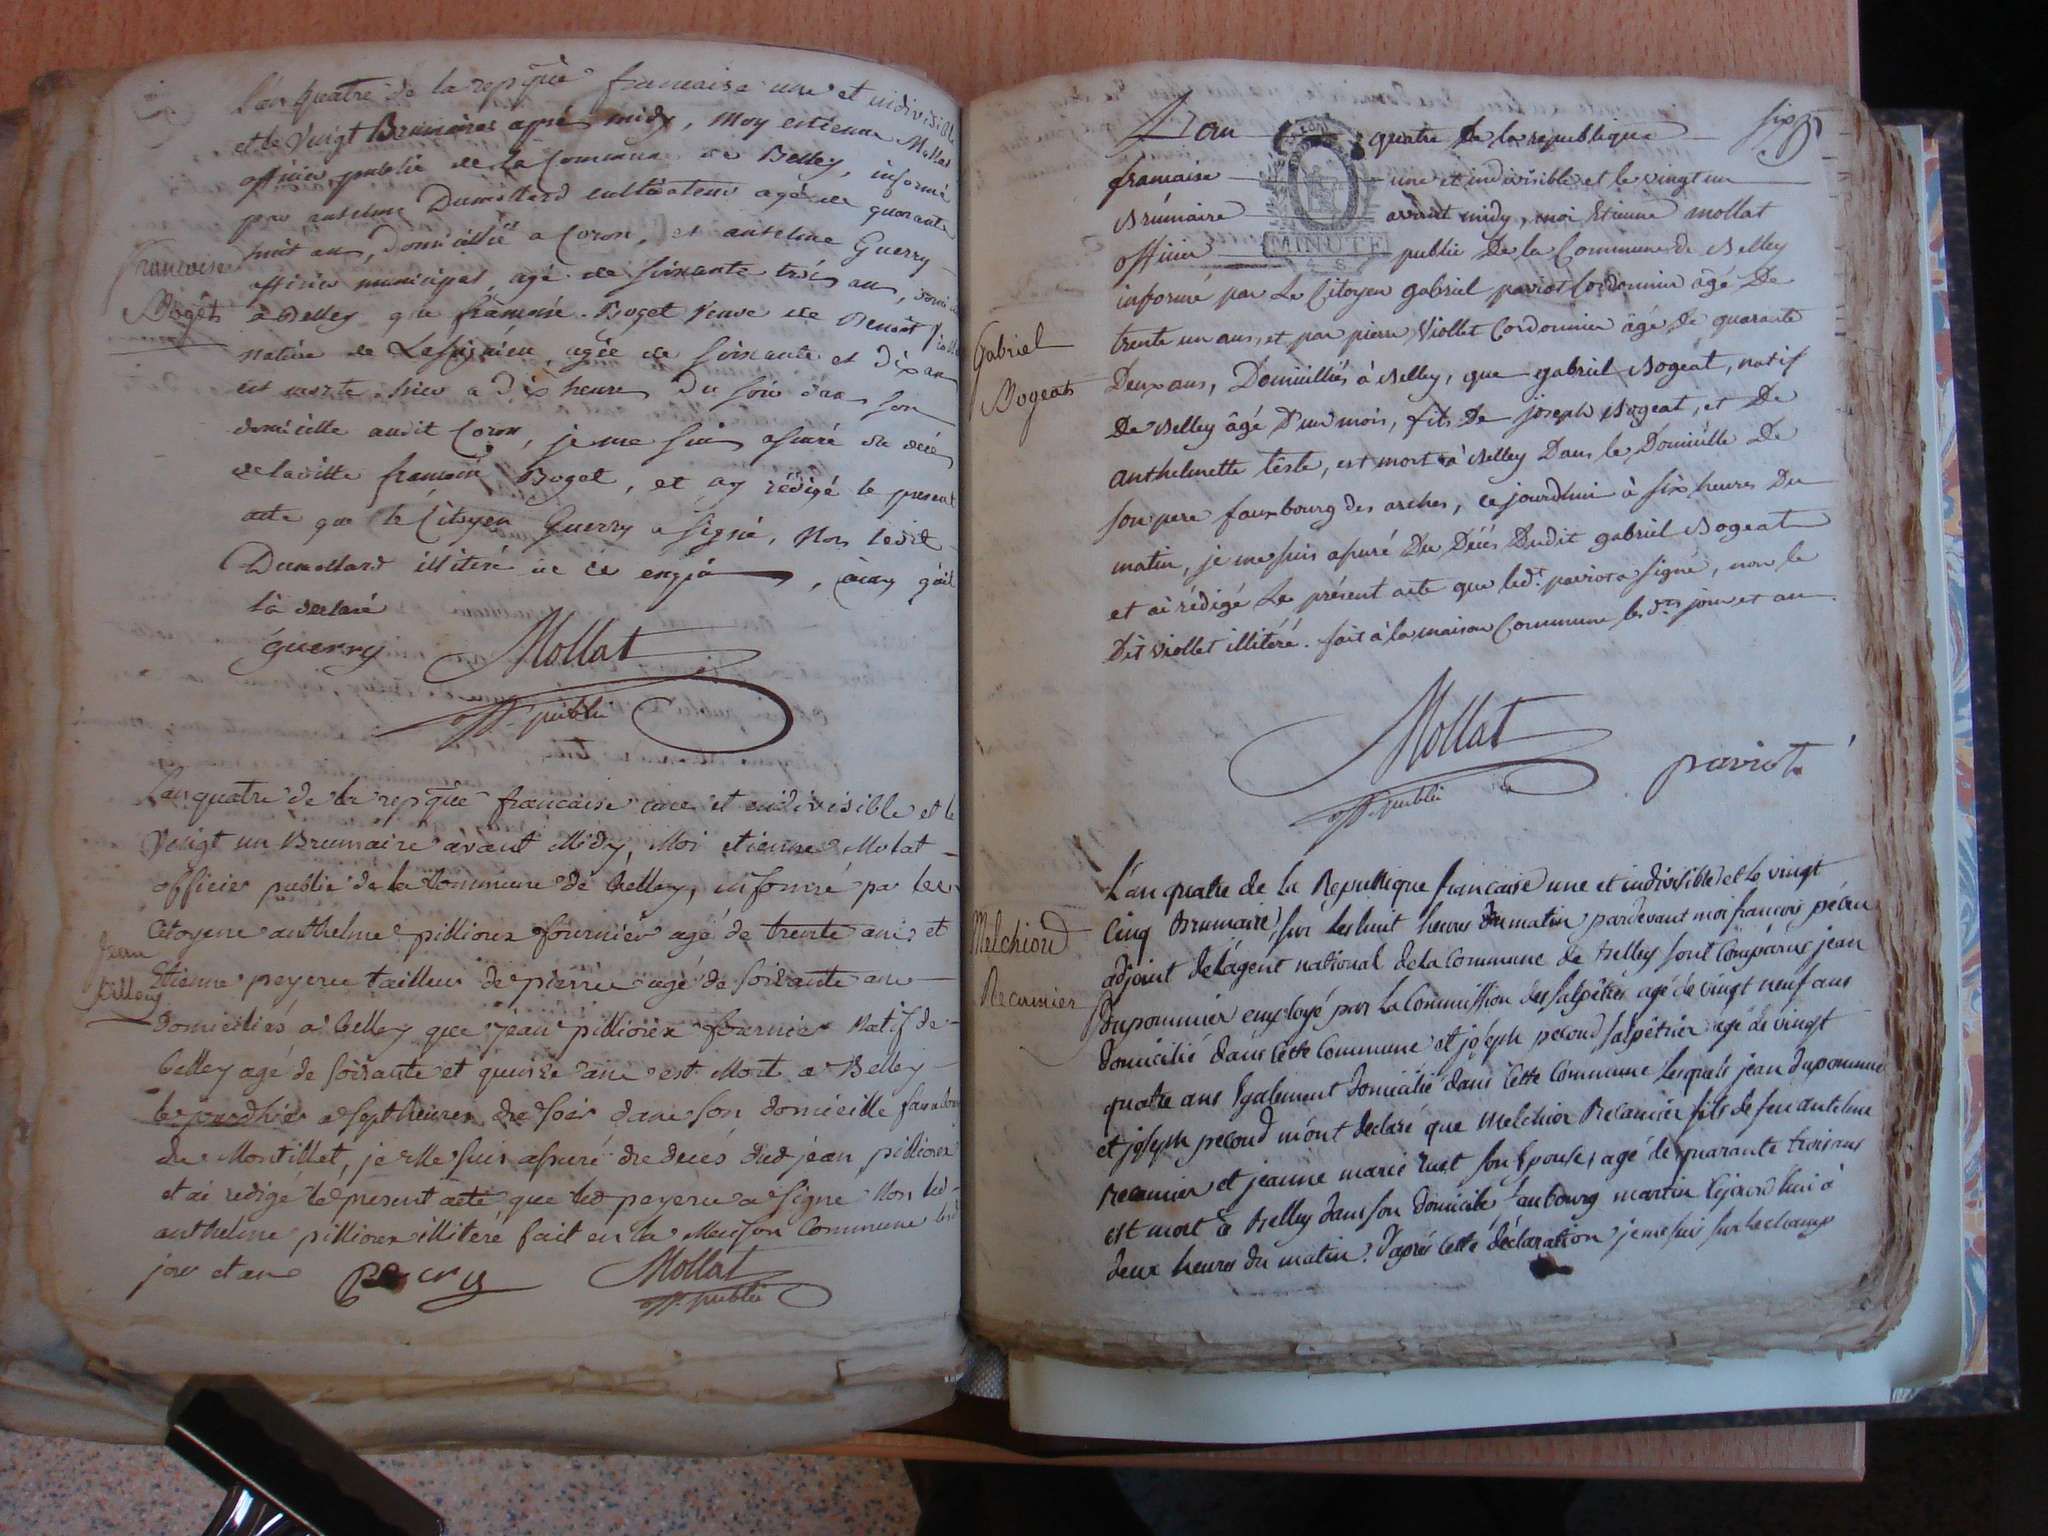 L'an quatre de la repque francaise une et indivisible
et le vingt Brumaires après midy, Moy estienne Mollat
officier public de la Commune de Belley, informé
par anselme Dumollard cultivateur agé de quarante
huit ans, Domicillié a Coron, et anselme Guerry
officier municipal, agé de soixante trois ans,
à Belley que françoise Boget veuve de Benoit
native de agée de soixante et dix ans
est morte hier a dix heures du soir dans son
domicille audit Coron, je me suis assuré du décés
de laditte françoise Boget, et ay rédigé le present
acte que le Citoyen Guerry a signé, Non ledit
Dumollard illitéré de ce enquis, ainsy qu'il
l'a declaré
guerry Mollat
off. public
francoise
Bogets
L'an quatre de la repque francaise une et indivisible et le
Vingt un Brumaire avant Midy, Moi etienne Molat
officier public de la Commune de belley, informé par les
Citoyens anthelme pillioux fournier agé de trente ans et
Etienne peyeru tailleur de pierre agé de soixante ans
domiciliés a belley que jean pillioux fournier Natif de
belley agé de soixante et quinze ans est Mort a Belley
a sept heures du soir dans son domicille
du Montillet, je Me suis assuré du decés dud jean pillioux
et ai redigé le present acte, que led peyeru a signé Non led
anthelme pillioux illitéré fait en la Maison Commune les
jour et an Mollat
off. public
jean
L'an quatre de la republique six
francaise une et indivisible et le vingt un
Brumaire avant midy, moi Etienne mollat
officier public de la Commune de Belley
MINUTE
informé par Le Citoyen gabriel paviot Cordonnier âgé De
trente un ans, et par pierre Viollet Cordonnier âgé de quarante
Deux ans, Domicilliés à Belley, que gabriel Bogeat, natif
De Belley âgé D'un mois, fils De joseph Bogeat, et De
anthelmette teste, est mort à Belley Dans le Domicille De
son pere fauxbourg des arches, ce jourdhui à six heures Du
matin, je me suis assuré Du Décés Dudit gabriel Bogeat
et ai rédigé Le présent acte que led.t paviot a signé, non le
Dit viollet illitéré. fait à la maison Commune les d.ts jour et an
Gabriel
Bogeat
Mollat paviot
off. public
L'an quatre de la Republique francaise une et indivisible et le vingt
Cinq Brumaire, sur les huit heures du matin pardevant moi francois pécou
adjoint de l'agent national de la Commune de Belley sont Comparus jean
Dupommier employé par la Commission des salpêtres agé de vingt neuf ans
domicilié dans Cette Commune et joseph pecoud salpêtrier agé de vingt
quatre ans Egalement domicilié dans Cette Commune Lesquels jean dupommier
et joseph pecoud m'ont déclaré que Melchior Recamier fils de feu antelme
Recamier et jeanne marie ruet son Epouse, agé de quarante trois ans
est mort à Belley dans son domicile faubourg martin Cejourd'hui à
deux heures du matin. D'après Cette déclaration je me suis sur le champ
Melchiord
Recamier